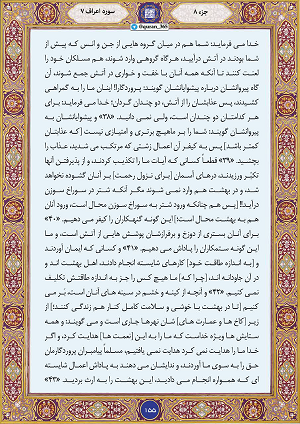 جزء ۸
@quran_365
سوره اعراف ۷
خدا می فرماید: شما هم در میان گروه هایی از جن و انس که پیش از
شما بودند در آتش درآیید. هرگاه گروهی وارد شوند، هم مسلکان خود را
لعنت کنند تا آنکه همه آنان با خفت و خواری در آتش جمع شوند، آن
گاه پیروانشان درباره پیشوایانشان گویند: پروردگارا! اینان ما را به گمراهی
کشیدند، پس عذابشان را از آتش، دو چندان گردان؛ خدا می فرماید: برای
هر کدامتان دو چندان است، ولی نمی دانید. «۳۸» و پیشوایانشان به
پیروانشان گویند: شما را بر ما هیچ برتری و امتیازی نیست [که عذابتان
کمتر باشد] پس به کیفر آن اعمال زشتی که مرتکب می شدید، عذاب را
بچشید. «۳۹» قطعاً کسانی که آیات ما را تکذیب کردند و از پذیرفتن آنها
تکبّر ورزیدند، درهای آسمان [برای نزول رحمت] بر آنان گشوده نخواهد
شد، و در بهشت هم وارد نمی شوند مگر آنکه شتر در سوراخ سوزن
درآید!! [پس هم چنانکه ورود شتر به سوراخ سوزن محال است، ورود آنان
هم به بهشت محال است؛] این گونه گنهکاران را کیفر می دهیم. «۴۰»
برای آنان بستری از دوزخ و بر فرازشان پوشش هایی از آتش است، و ما
این گونه ستمکاران را پاداش می دهیم. «۴۱» و کسانی که ایمان آوردند
و [به اندازه طاقت خود] کارهای شایسته انجام دادند، اهل بهشت اند و
در آن جاودانه اند، [چرا که] ما هیچ کس را جز به اندازه طاقتش تکلیف
نمی کنیم. «۴۲» و آنچه از کینه و خشم در سینه های آنان است، بر می
کنیم [تا در بهشت با خوشی و سلامت کامل کنار هم زندگی کنند؛] از
زیر [کاخ ها و عمارت های] شان نهرها جاری است و می گویند: و همه
ستایش ها ویژه خداست که ما را به این [نعمت ها] هدایت کرد، و اگر
خدا ما را هدایت نمی کرد هدایت نمی یافتیم، مسلماً پیامبران پروردگارمان
حق را به سوی ما آوردند، و ندایشان می دهند به پاداش اعمال شایسته
ای که همواره انجام می دادید، این بهشت را به ارث بردید. «۴۳»
۱۵۵